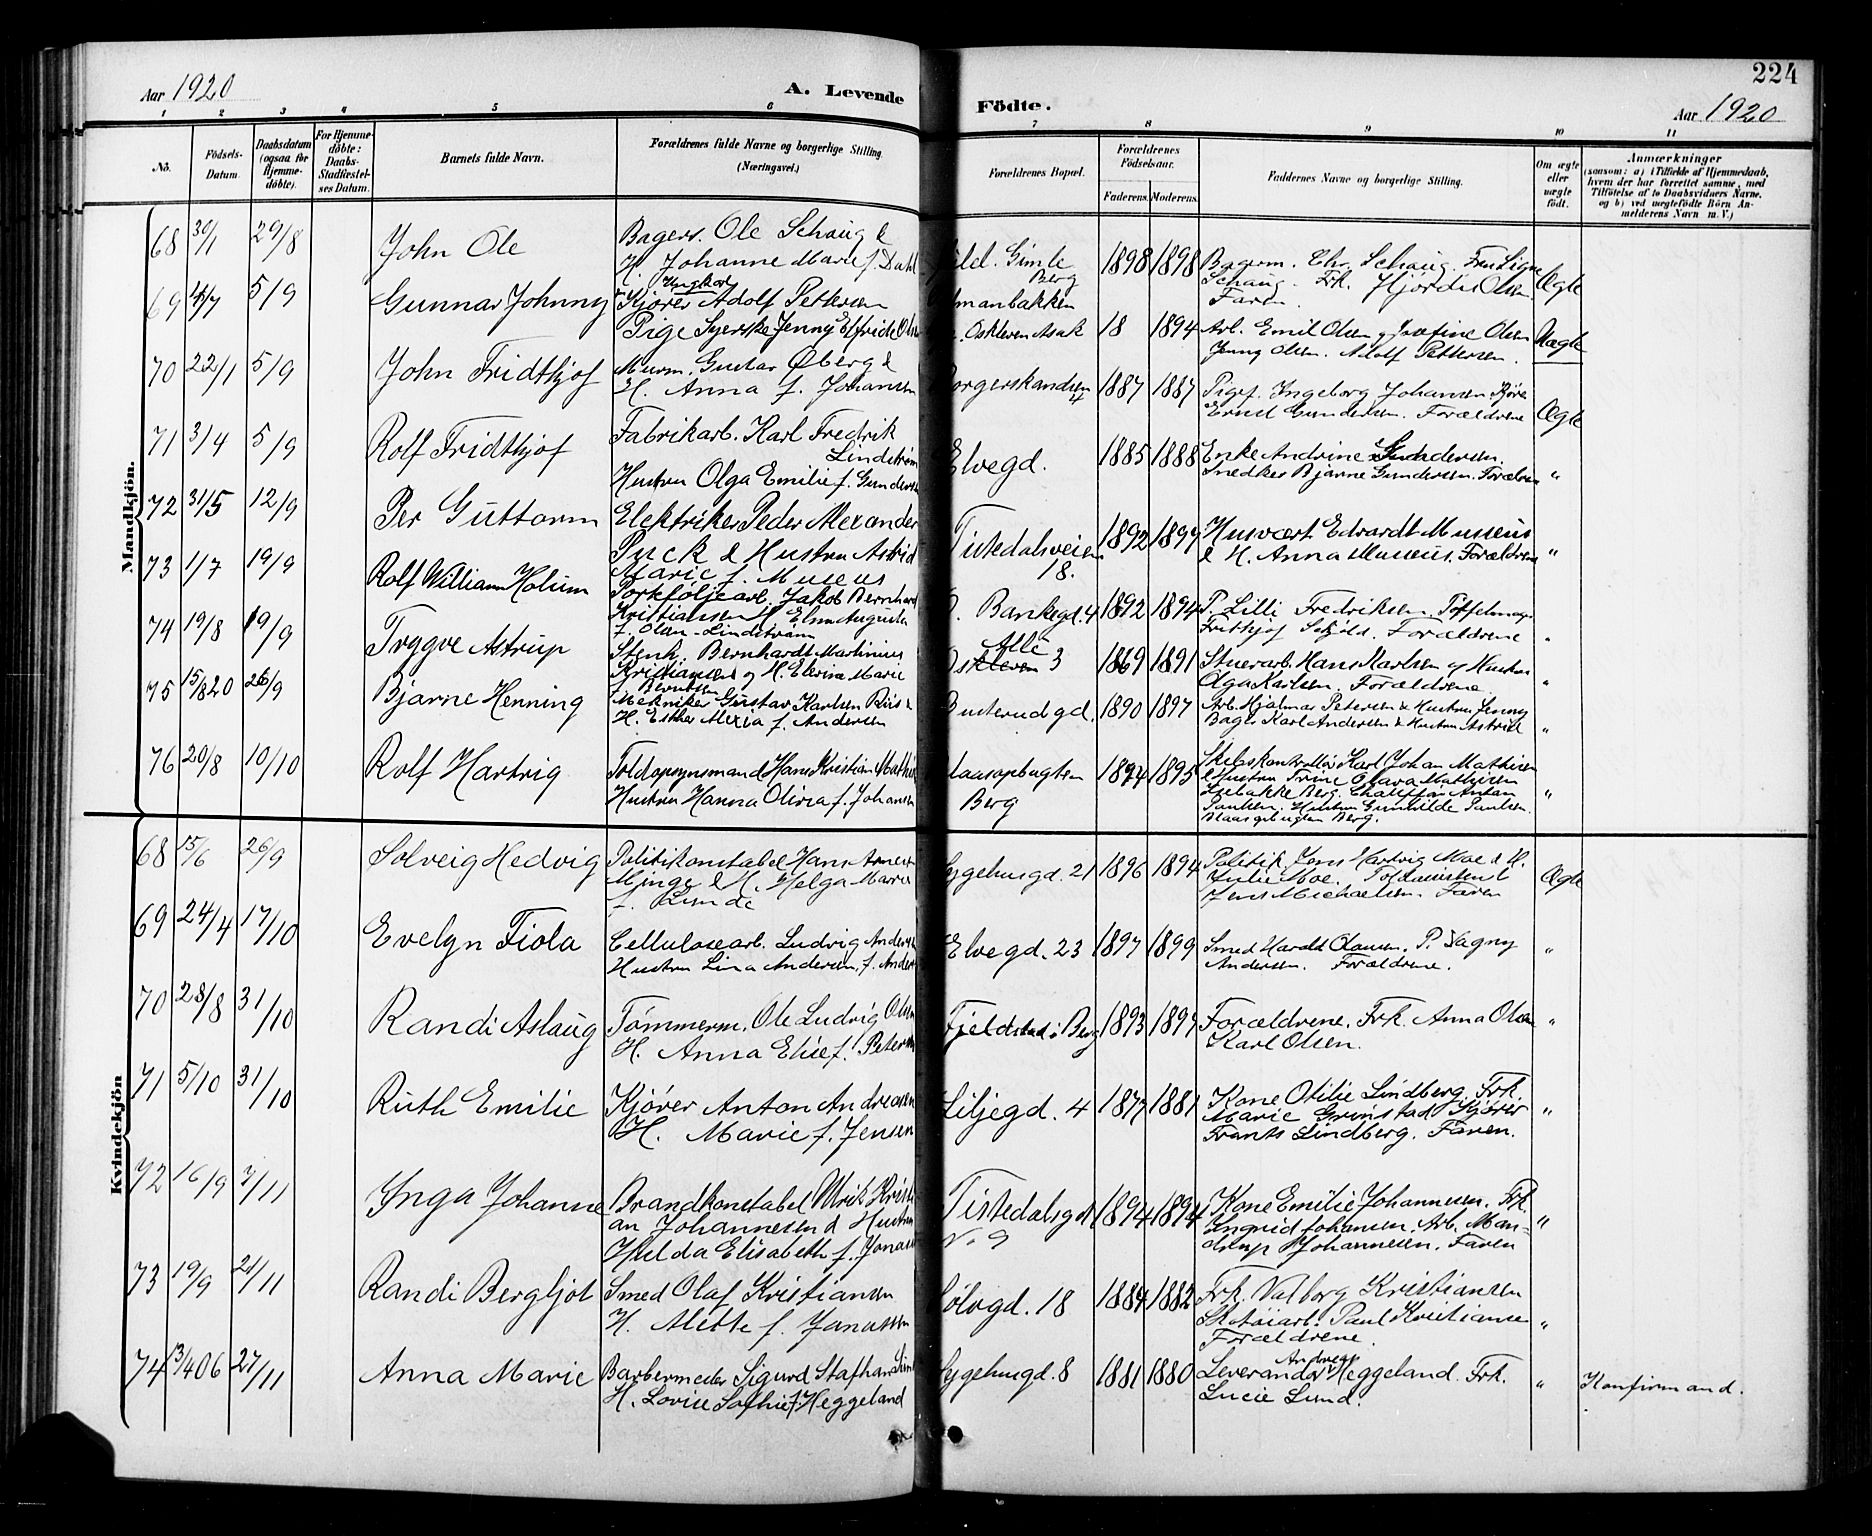 224
Aar 1920
A. Levende
Födte.
Aar 1920
1 2 3 4 5 6 7 8 9 10 11
No.
Födsels-Datum.
Daabsdatum (ogsaa for Hjemme-döbte).
For Hjemme-döbte: Daabs-Stadfæstel-ses Datum.
Barnets fulde Navn.
Forældrenes fulde Navne og borgerlige Stilling (Næringsvei.)
Forældrenes Bopæl.
Forældrenes Födselsaar.
Faderens. Moderens.
Faddernes Navne og borgerlige Stilling.
Om ægte eller uægte födt.
Anmærkninger
(saasom: a) i Tilfælde af Hjemmedaab,
hvem der har forrettet samme, med
Tilföielse af to Daabsvidners Navne,
og b) ved uægtefödte Börn An-
melderens Navn m. V.)
Mandkjön.
68 30/1 29/8 John Ole
Bagers. Ole Schaug &
H. Johanne Marie f. Dahl
Gimle
Berg
1898 1898
Bagerm. Chr. Schaug. Fru Signe
Schaug. Frk. Hjördis Olsen
Faren.
Ægte
69 5/9 Gunnar Johnny
Ungkar
Kjører Adolf Pettersen
Pige Syerske Jenny Elfride Olsen
manbakken
Oskleven Asak
18 1894
Arb. Emil Olsen & Josefine Olsen
Jenny Olsen. Adolf Pettersen.
Uægte
70 22/1 5/9 John Fridthjof
Murm. Gustav Øberg &
H. Anna f. Johansen
1887 1887
Pige Ingeborg Johansen Kjører
Ernst Gundersen. Forældrene
Ægte
71 3/4 5/9 Rolf Fridthjof
Fabrikarb. Karl Fredrik
Lindstrøm
Hustru Olga Emilie f. Gunders
Elvegd.
1885 1888
Enke Andrine Gundersen.
Snedker Bjarne Gundersen. Forældren
"
72 31/5 12/9 Per Guttorm
Elektriker Peder Alexander
Puck & Hustru Astrid
Marie f. Museus
Tistedalsveien
18.
1892 1897
Husvært Edvardt Museus
& H. Anna Museus. Forældren
"
73 1/7 19/9 Rolf William Holum
Porteføljearb. Jakob Bernhard
Kristiansen H. Elna Augusta
f. Olsen-Lindstrøm
Bankegd. 4
1892 1894
P. Lilli Fredriksen. Tøffelmager
Frithjof Schjøld. Forældrene
"
74 19/8 19/9 Trygve Astrup
Stenh. Bernhardt Martinius
Kristiansen og H. Elvine Marie
Berntsen
Alle
Oskleven 3
1869 1891
Stuerarb. Hans Karlsen og Hustru
Olga Karlsen. Forældrene
"
75 15/8 20 26/9 Bjarne Henning
Mekniker Gustav Karlsen Riis &
H. Esther Alexia f. Andersen
Busterudgd.
1890 1897
Arb. Hjalmar Petersen & Hustru Jenny
Bager Karl Andersen & Hustru Astrid
"
76 20/8 10/10 Rolf Hartvig
Toldopsynsmand Hans Kristian Mathis
Hustru Hanna Olivia f. Johansen
laasopbugten
Berg
1894 1895
Skibskontrollør Karl Johan Mathisen
& Hustru Trine Olava Mathisen
Sjøbakke Berg. Chauffør Anton
Paulsen. Hustru Gunhilde Paulsen
Berg.
"
Kvindekjön
68 15/6 26/9 Solveig Hedvig
Politikonstabel Hans Arnert
Minge & H. Helga Marie
f. Lunde
Sygehusgd. 21
1896 1894
Politik. Jens Hartvig Moe & H.
Julie Moe. Toldassistent
Jens Michaelsen. Faren
Ægte
69 24/4 17/10 Evelyn Fiola
Cellulosearb. Ludvig Anders
Hustru Lina Andersen, f. Anders
Elvegd. 23
1897 1899
Smed Harald Olausen. P. Dagny
Andersen. Forældrene.
"
70 28/8 31/10 Randi Aslaug
Tømmerm. Ole Ludvig Olsen
H. Anna Elise f. Peters
Fjeldstad i Berg
1893 1897
Forældrene. Frk. Anna Olsen
Karl Olsen.
"
71 5/10 31/10 Ruth Emilie
Kjører Anton Andreasen
H. Marie f. Jensen
Liljegd. 4
1877 1881
Kone Otilie Lindberg. Frk.
Marie Grimstad Kjører
Frants Lindberg. Faren.
"
72 16/9 7/11 Inga Johanne
Brandkonstabel Ulrik Kristi
an Johannesen & Hustru
Hulda Elisabeth f. Jonas
Tistedalsgd
No 9
1894 1894
Kone Emilie Johannesen. Frk.
Ingrid Johansen. Arb. Man-
drup Johannesen. Faren
"
73 19/9 21/11 Randi Bergljot
Smed Olaf Kristiansen
H. Alette f. Jonassen
Sølvgd. 18
1884 1882
Frk. Valborg Kristiansen
Skotøiarb. Paul Kristiansen
Forældrene
"
74 13/4 06 27/11 Anna Marie
Barbermester Sigurd Staffhan
H. Lovise Sofhie f. Heggeland
Sygehusgd. 8
1881 1880
Andreas
Leverandør Heggeland. Frk.
Lucie Lund.
"
Konfirmand.